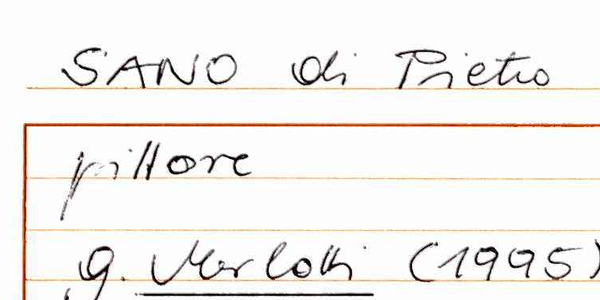 SANO di Pietro
pittore
g. Merlotti (1995)